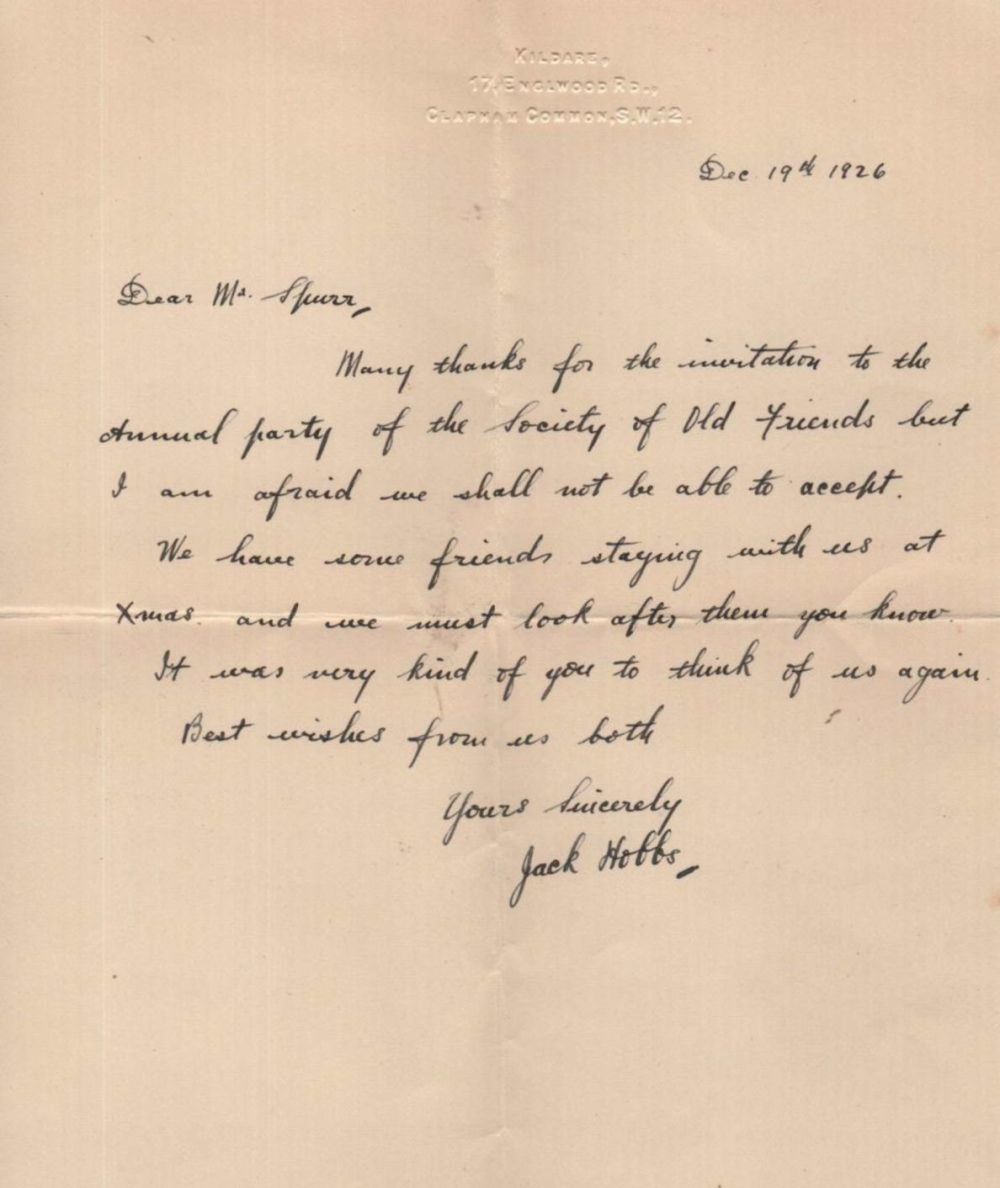 KILDARE,
17, ENGLWOOD RD.,
CLAPHAM COMMON, S.W.12.
Dec 19th 1926
Dear Mr. Spurr,
Many thanks for the invitation to the
Annual party of the Society of Old Friends but
I am afraid we shall not be able to accept.
We have some friends staying with us at
Xmas. and we must look after them you know.
It was very kind of you to think of us again.
Best wishes from us both
Yours Sincerely
Jack Hobbs,